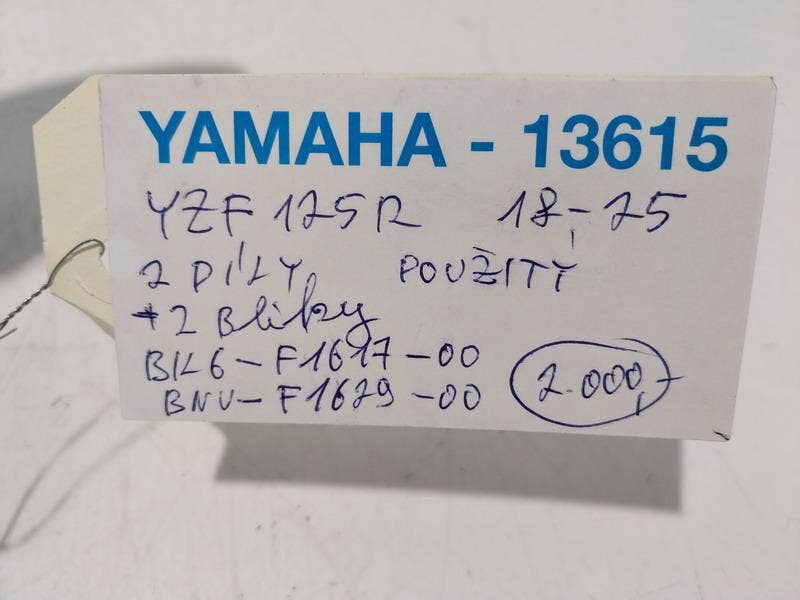 YAMAHA - 13615
YZF 125R 18-25
2 DÍLY POUŽITÝ
+2 Blikry
BK6-F1617-00
BNU-F1629-00 2.000,-